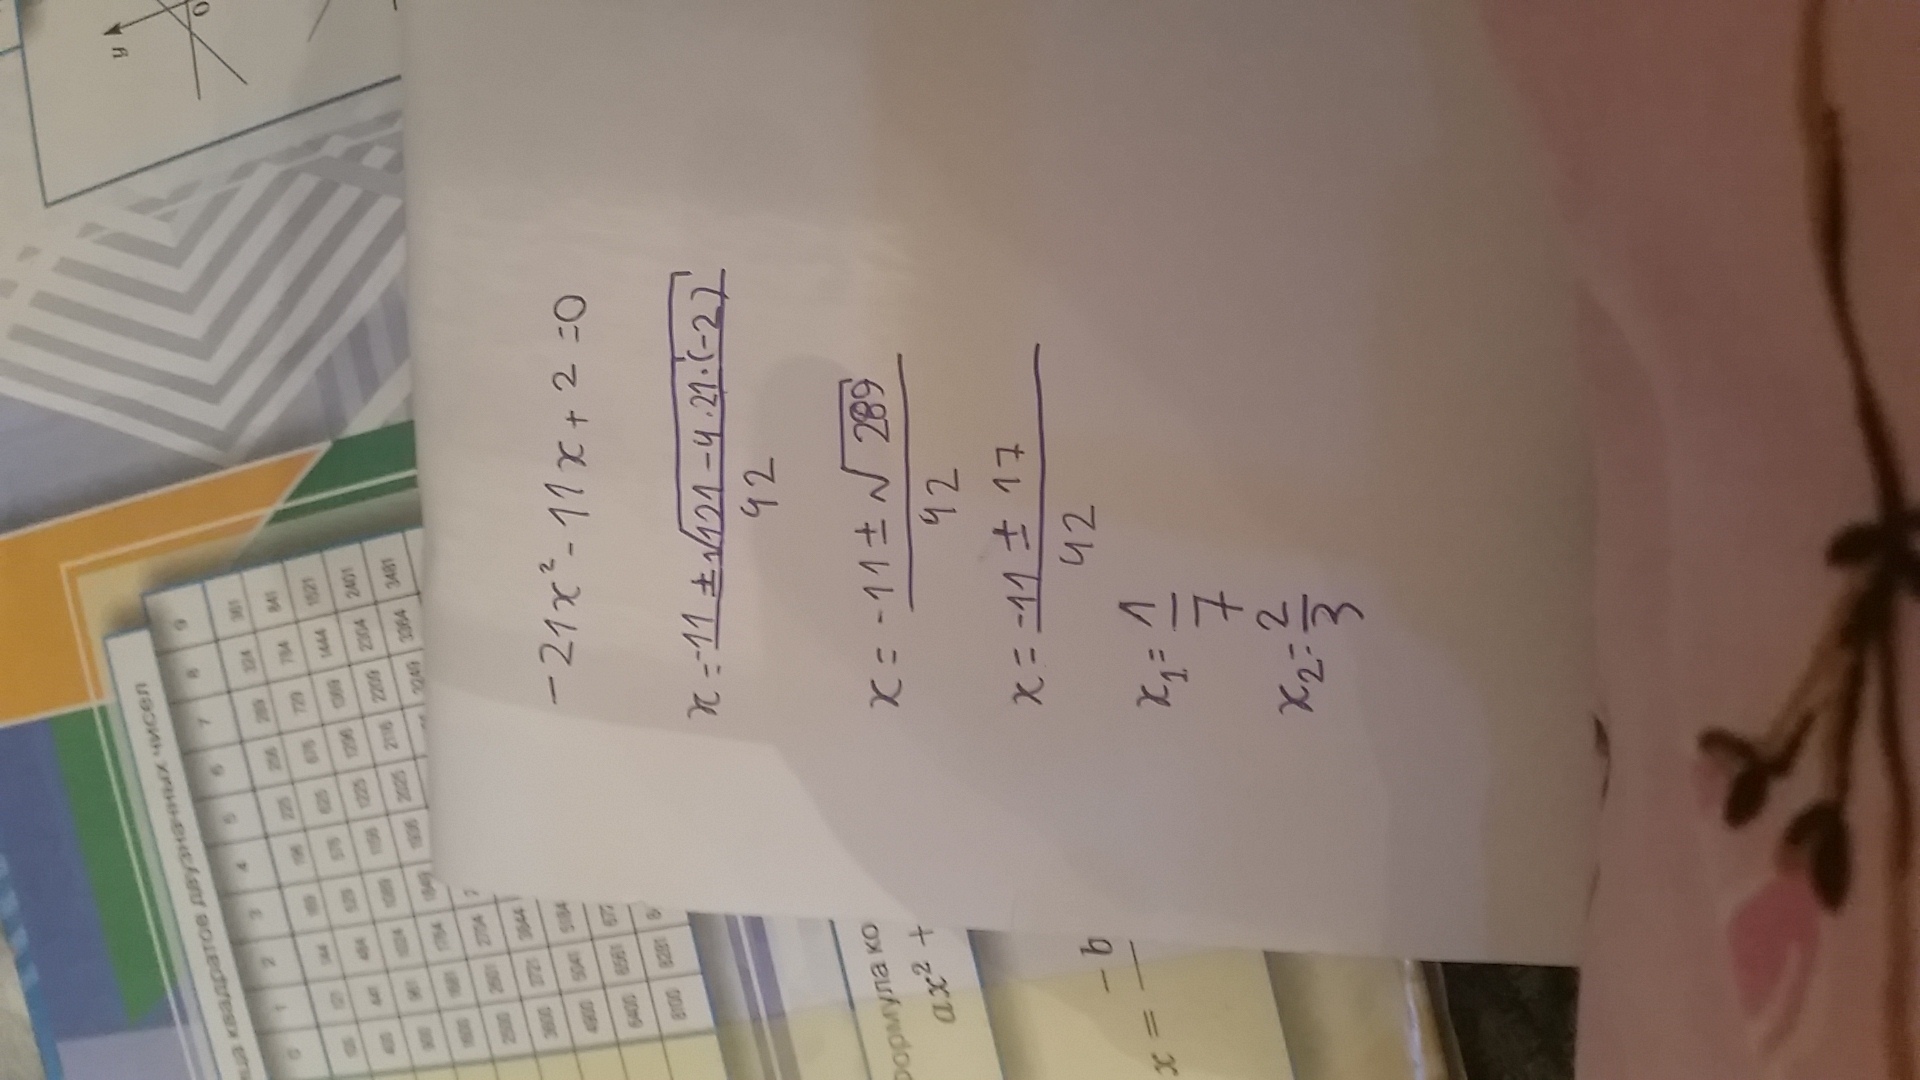 -21x² - 11x + 2 = 0
x = -11 ± √121 - 4 · 21 · (-2)
42
x = -11 ± √289
42
x = -11 ± 17
42
x₁ = 1
7
x₂ = 2
3
y
0
квадратов двузначных чисел
0 1 2 3 4 5 6 7 8 9
100 121 144 169 196 225 256 289 324 361
400 441 484 529 576 625 676 729 784 841
900 961 1024 1089 1156 1225 1296 1369 1444 1521
1600 1681 1764 1849 1936 2025 2116 2209 2304 2401
2500 2601 2704 3249 3364 3481
3600 3721 3844
4900 5041 5184
6400 6561
8100 8281
ax² +
x = -b